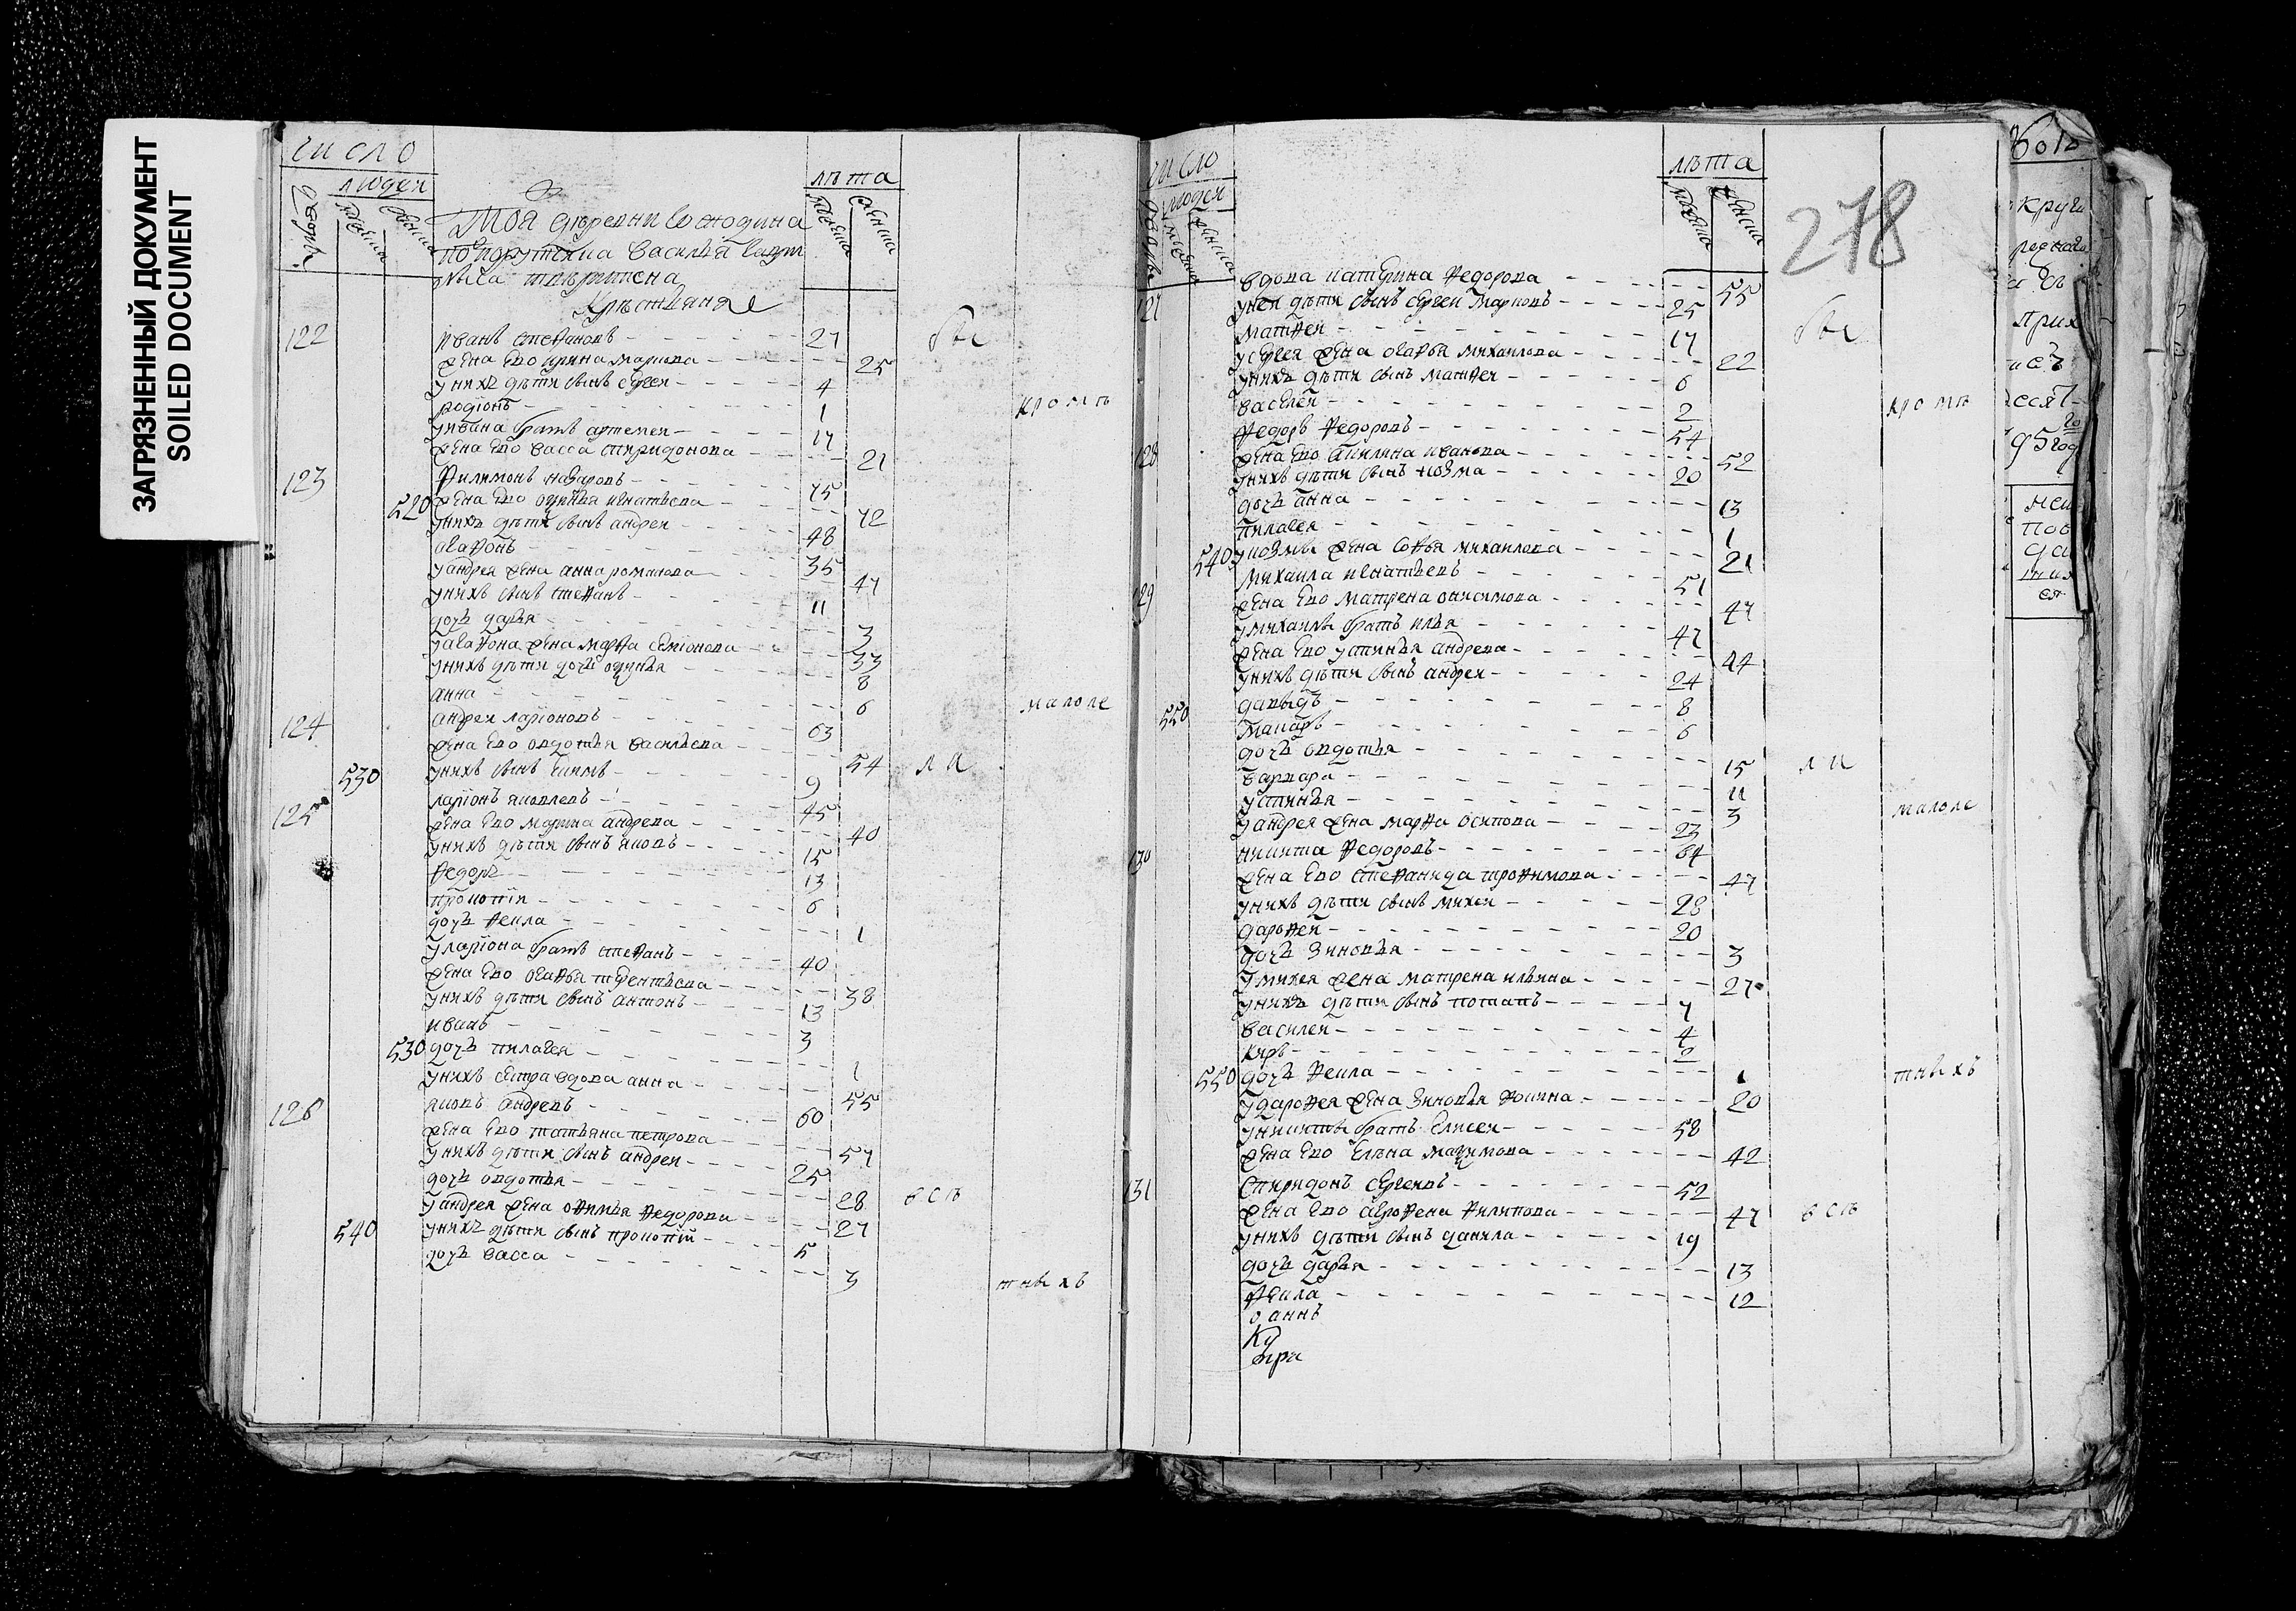 ЗАГРЯЗНЕННЫЙ ДОКУМЕНТ
SOILED DOCUMENT
число
людей
лѣта
Тоя дѣревни Господина
порутчика василья
крѣстьяня
122 иванъ стефановъ 27 бы
жена ево ирина маркова 25
уних дѣти сынъ сергеи 4
родiонъ 1 кромѣ
уивана братъ артемеи 17
жена ево васса спиридонова 21
123 Филимонъ назаровъ 75
520 жена ево игнатьева 72
уних дѣти сынъ андреи 48
агафонъ 35
уандрея жена анна романова 47
унихъ сынъ стефанъ 11
дочь дарья 3
уагафона жена марфа семiонова 33
унихъ дѣти дочь 8
анна 6 малоле
124 андреи ларiоновъ 63
жена ево овдотья васильева 54 ли
530 унихъ сынъ екимъ 9
125 ларiонъ яковлевъ 45
жена ево марина андрева 40
унихъ дѣти сынъ яковъ 15
федоръ 13
прокопiи 6
дочь фекла 1
уларiона братъ стефанъ 40
жена ево агафья терентьева 38
унихъ дѣти сынъ антонъ 13
иванъ 3
530 дочь пилагея 1
унихъ сестра вдова анна 55
126 яковъ андревъ 60
жена ево татьяна петрова 57
унихъ дѣти сынъ андреи 25
дочь овдотья 28 всѣ
уандрея жена офимья федорова 27
540 унихъ дѣти сынъ прокопiи 5
дочь васса 3 тныхъ
число
людей
лѣта
278
вдова катерина федорова 55
127 унеи дѣти сынъ сергеи марковъ 25
матфеи 17 бы
усергея жена агафья михаилова 22
унихъ дѣти сынъ матфеи 6
василеи 2 кромѣ
128 федоръ федоровъ 54
жена ево акилина иванова 52
унихъ дѣти сынъ козма 20
дочь анна 13
пилагея 1
540 укозмы жена софья михаилова 21
129 михаила игнатьевъ 51
жена ево матрена онисимова 47
умихаилы братъ илья 47
жена ево устинья андрева 44
унихъ дѣти сынъ андреи 24
550 давыдъ 8
макаръ 6
дочь овдотья 15 ли
варвара 11
устинья 3 малоле
уандрея жена марфа осипова 23
130 никита федоровъ 64
жена ево стефанида трофимова 47
унихъ дѣти сынъ михеи 28
дарофеи 20
дочь зиновья 3
умихея жена матрена ильина 27
унихъ дѣти сынъ потапъ 7
василеи 4
киръ 2
550 дочь фекла 1 тныхъ
ударофея жена зиновья фокина 20
уникиты братъ елисеи 58
жена ево елена максимова 42
131 спиридонъ сергеевъ 52
жена ево агрофена филипова 47 всѣ
унихъ дѣти сынъ данила 19
дочь дарья 13
фекла 12